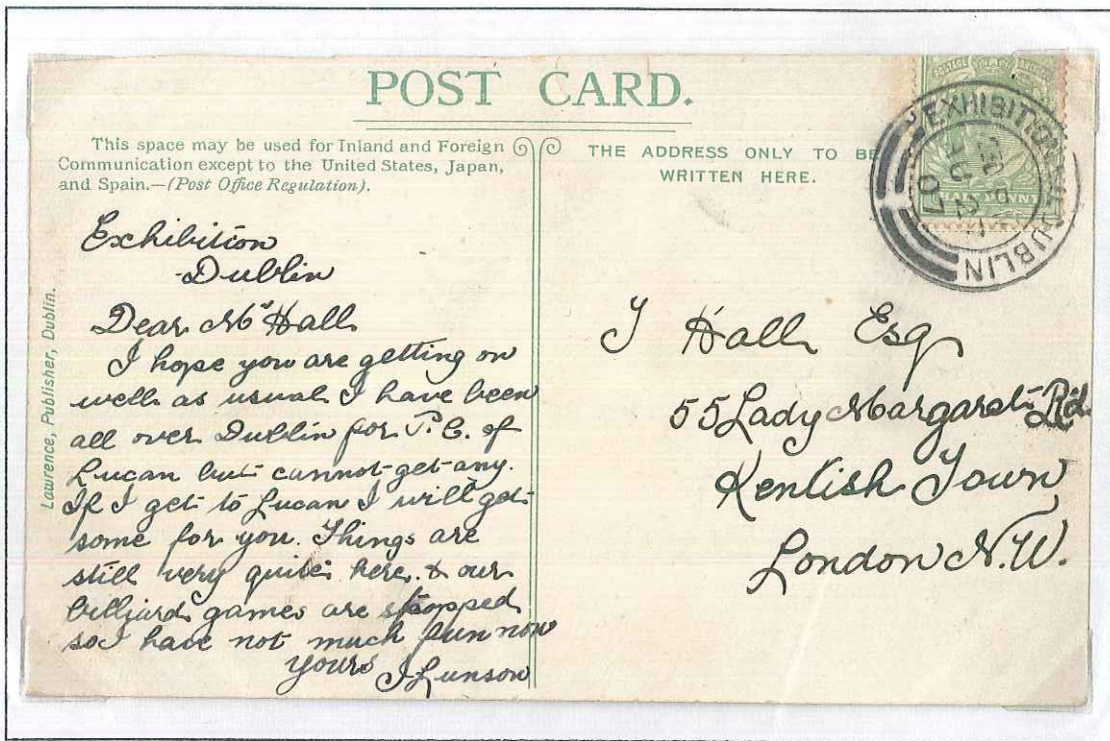 POST CARD.
This space may be used for Inland and Foreign
Communication except to the United States, Japan,
and Spain.—(Post Office Regulation).
THE ADDRESS ONLY TO BE
WRITTEN HERE.
EXHIBITION
DUBLIN
07
POSTAGE
HALFPENNY
Lawrence, Publisher, Dublin.
Exhibition
Dublin
Dear Mr Hall
I hope you are getting on
well as usual I have been
all over Dublin for P.C. of
Lucan but cannot get any.
If I get to Lucan I will get
some for you. Things are
still very quite here. & our
billiard games are stopped
so I have not much fun now
Yours J Lunson
J Hall Esq
55 Lady Margaret Rd
Kentish Town
London N.W.